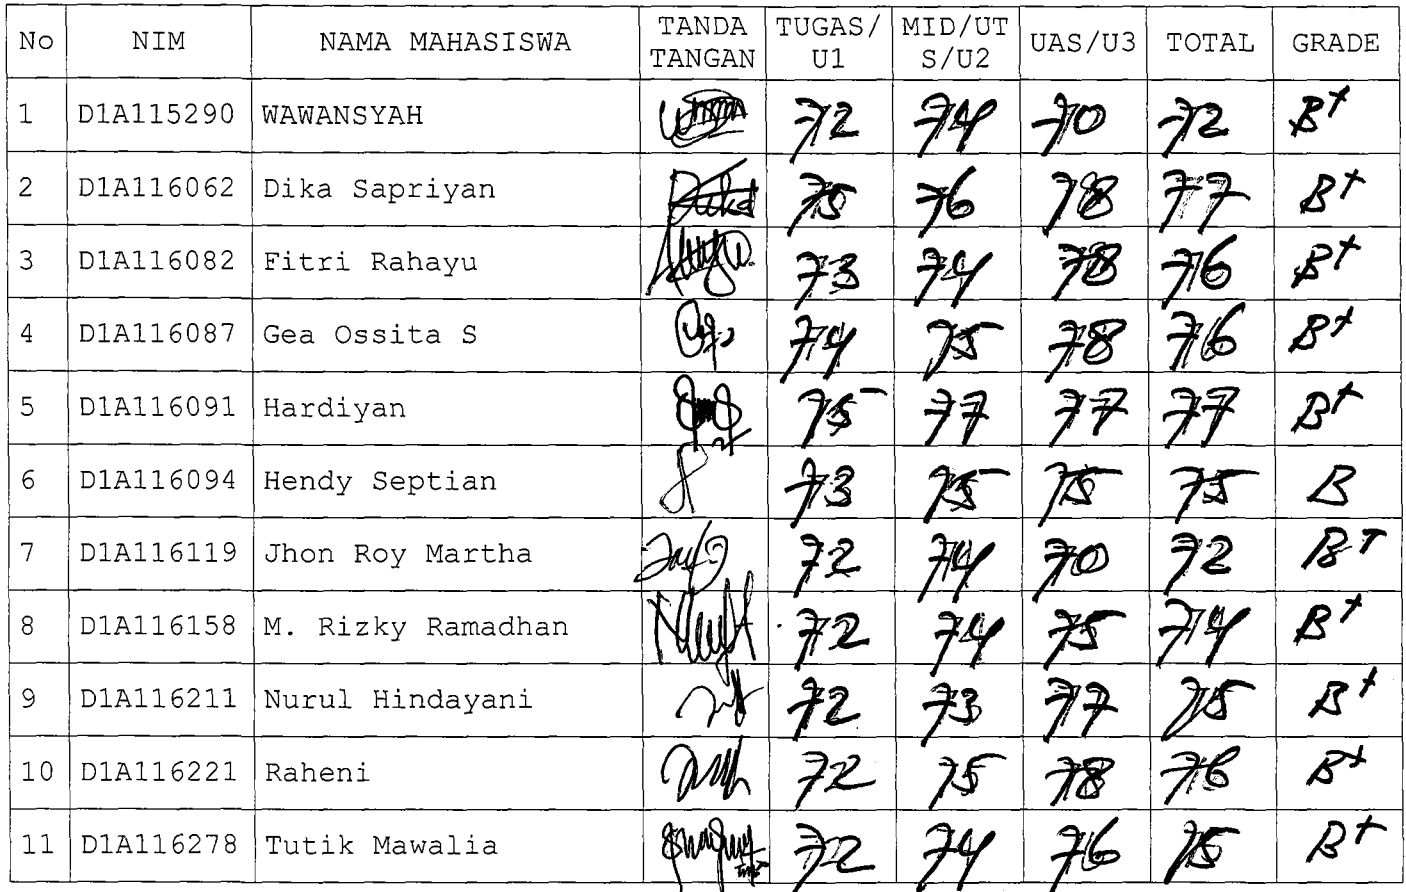 No NIM NAMA MAHASISWA TANDA TANGAN TUGAS/U1 MID/UTS/U2 UAS/U3 TOTAL GRADE
1 D1A115290 WAWANSYAH 72 74 70 72 B+
2 D1A116062 Dika Sapriyan 75 76 78 77 B+
3 D1A116082 Fitri Rahayu 73 74 78 76 B+
4 D1A116087 Gea Ossita S 74 75 78 76 B+
5 D1A116091 Hardiyan 75 77 77 77 B+
6 D1A116094 Hendy Septian 73 75 75 75 B
7 D1A116119 Jhon Roy Martha 72 74 70 72 B+
8 D1A116158 M. Rizky Ramadhan 72 74 75 74 B+
9 D1A116211 Nurul Hindayani 72 73 77 75 B+
10 D1A116221 Raheni 72 75 78 76 B+
11 D1A116278 Tutik Mawalia 72 74 76 75 B+